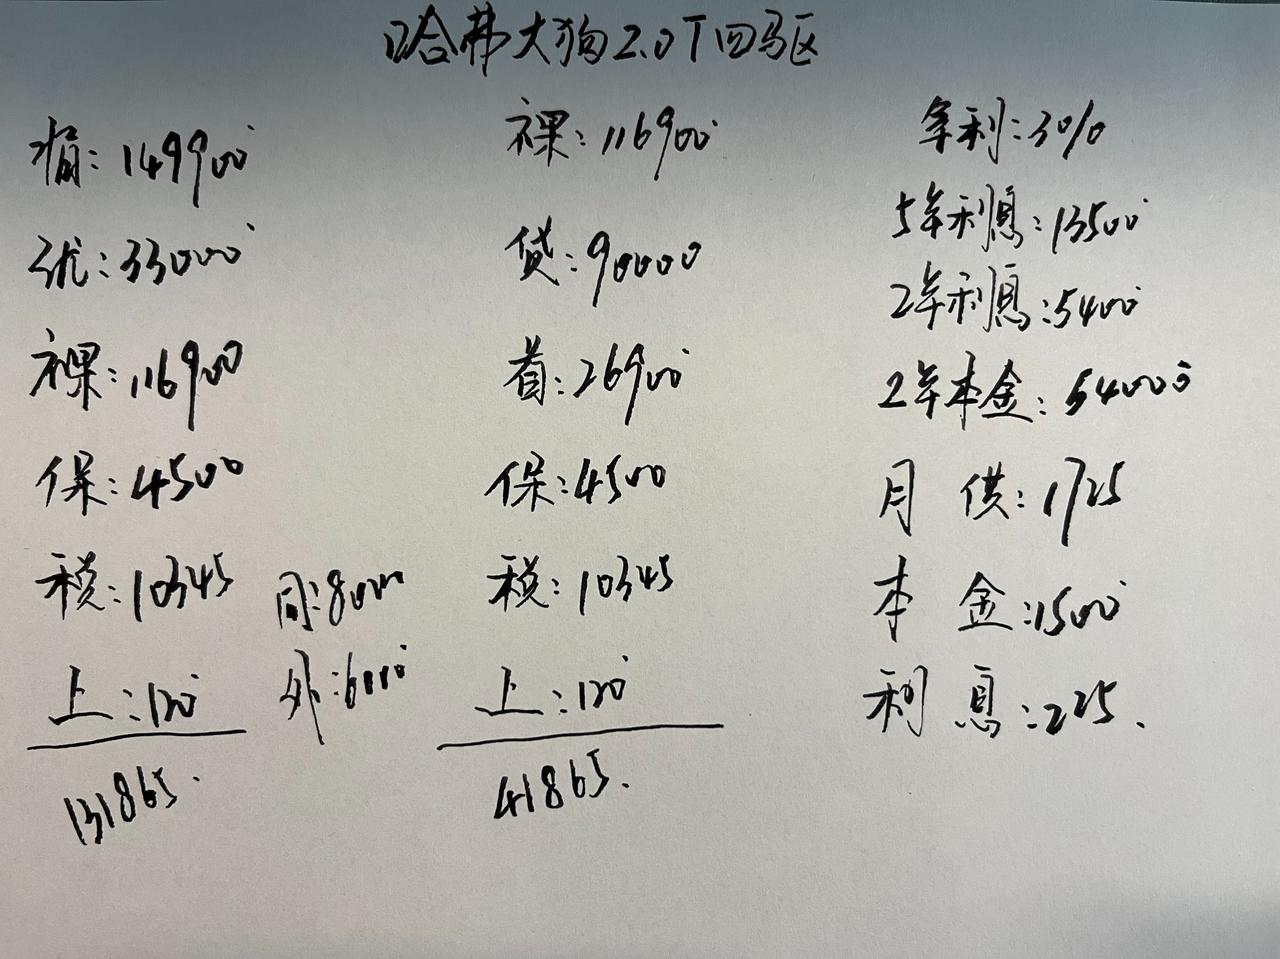 哈弗大狗2.0T四驱
指: 149900
优: 33000
裸: 116900
保: 4500
税: 10345
上: 120
131865.
同: 8000
外: 6000
裸: 116900
贷: 90000
首: 26900
保: 4500
税: 10345
上: 120
41865.
年利: 3%
5年利息: 13500
2年利息: 5400
2年本金: 54000
月 供: 1725
本 金: 1500
利 息: 225.